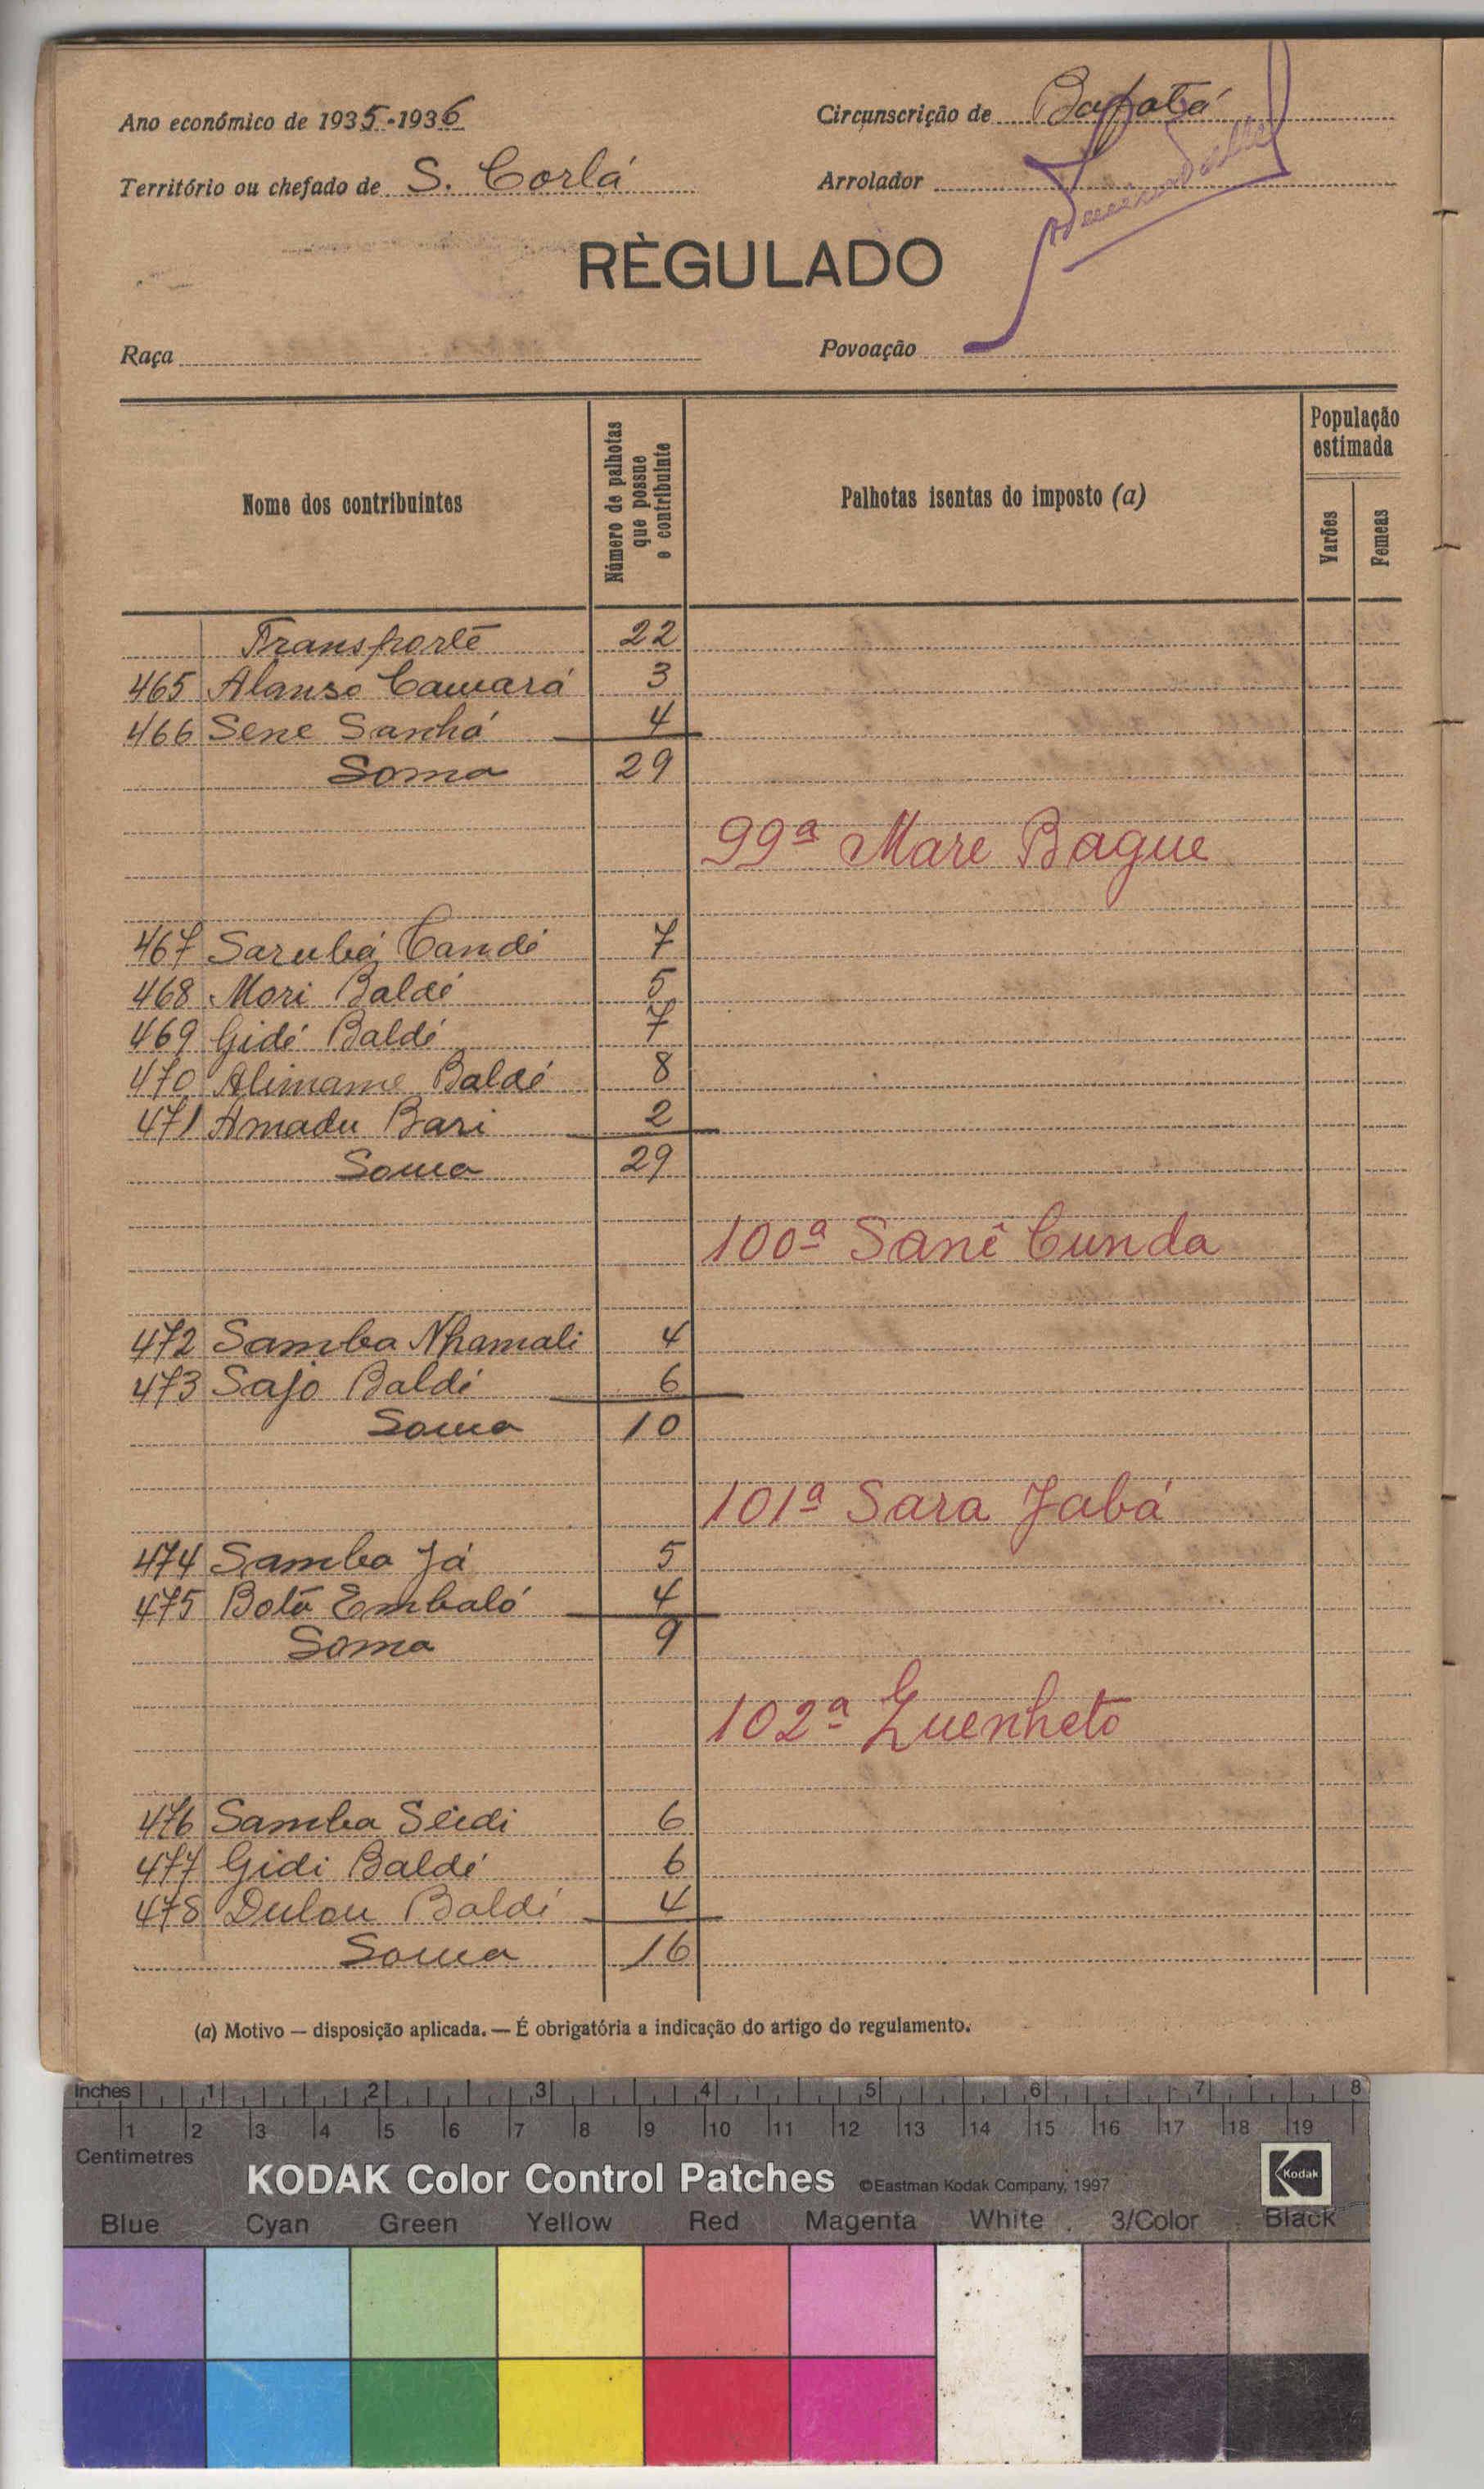 Ano económico de 1935-1936
Circunscrição de Bafatá
Território ou chefado de S. Corlá
Arrolador
RÈGULADO
Raça
Povoação
Nome dos contribuintes
Número de palhotas que possue o contribuinte
Palhotas isentas do imposto (a)
População estimada
Varões
Femeas
Transporte 22
465 Alanso Camará 3
466 Sene Sanhá 4
Soma 29
99ª Mare Bague
467 Sarubá Candé 7
468 Mori Baldé 5
469 Gidé Baldé 7
470 Alimame Baldé 8
471 Amadu Bari 2
Soma 29
100ª Sanê Cunda
472 Samba Nhamali 4
473 Sajo Baldé 6
Soma 10
101ª Sara Jabá
474 Samba Já 5
475 Botô Embaló 4
Soma 9
102ª Guenheto
476 Samba Seidi 6
477 Gidi Baldé 6
478 Dulou Baldé 4
Soma 16
(a) Motivo — disposição aplicada. — É obrigatória a indicação do artigo do regulamento.
Inches 1 2 3 4 5 6 7 8
1 2 3 4 5 6 7 8 9 10 11 12 13 14 15 16 17 18 19
Centimetres
KODAK Color Control Patches ©Eastman Kodak Company, 1997 Kodak
Blue Cyan Green Yellow Red Magenta White 3/Color Black